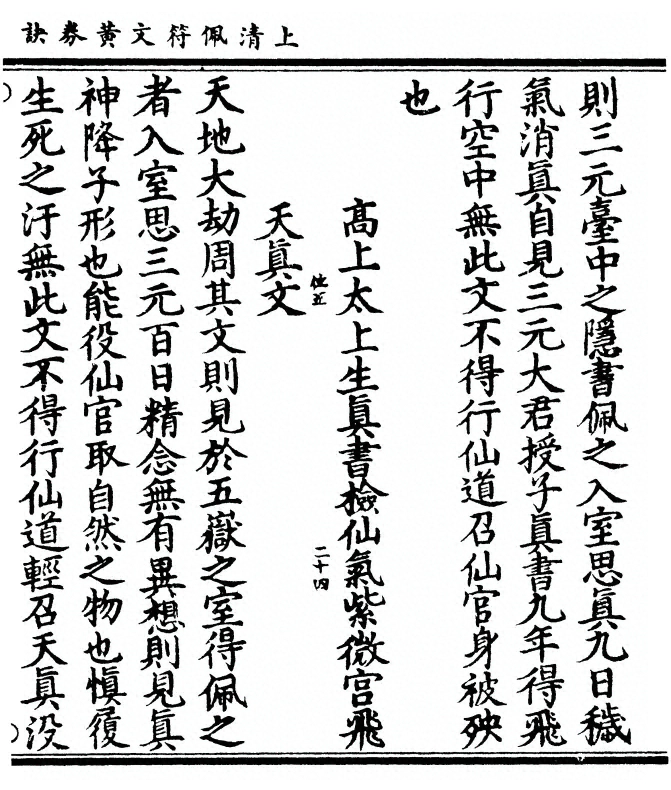 上清佩符文黃券訣
則三元臺中之隱書佩之入室思眞九日穢
氣消眞自見三元大君授子眞書九年得飛
行空中無此文不得行仙道召仙官身被殃
也
髙上太上生眞書撿仙氣紫微宮飛
位五
二十四
天眞文
天地大劫周其文則見於五嶽之室得佩之
者入室思三元百日精念無有異想則見眞
神降子形也能役仙官取自然之物也愼履
生死之汙無此文不得行仙道輕召天眞没